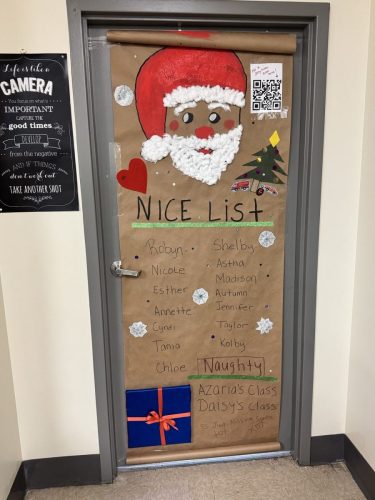 Life is like a
CAMERA
you focus on what's
IMPORTANT
CAPTURE THE
good times
DEVELOP
from the negative
AND IF THINGS
don't work out
TAKE ANOTHER SHOT
NICE LIST
Robyn
Nicole
Esther
Annette
Cyndi
Tania
Chloe
Shelby
Astha
Madison
Autumn
Jennifer
Taylor
Kolby
Naughty
Azaria's Class
Daisy's Class